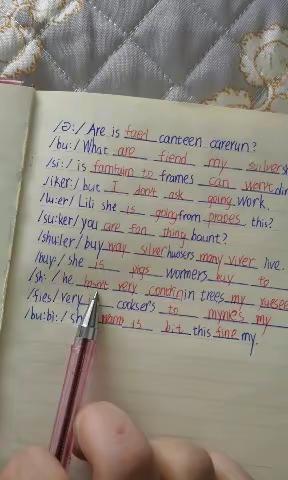 /ə:/ Are is faed canteen carerun?
/bu:/ What are fiend my sulversh
/si:/ is famtuin to frames can went din
/iker:/ but I don't ask going work.
/lu:er/ Lili she is going from propes this?
/su:ker/ you are fan thing baunt?
/shu:ler/ buy way silver huosers many viver live.
/buy/ she is vigs wormers buy to
/sh:/ he imant very condinin trees my
/fies/ very cookser's to mymes my
/bu:bi:/ sh is bit this fine my.